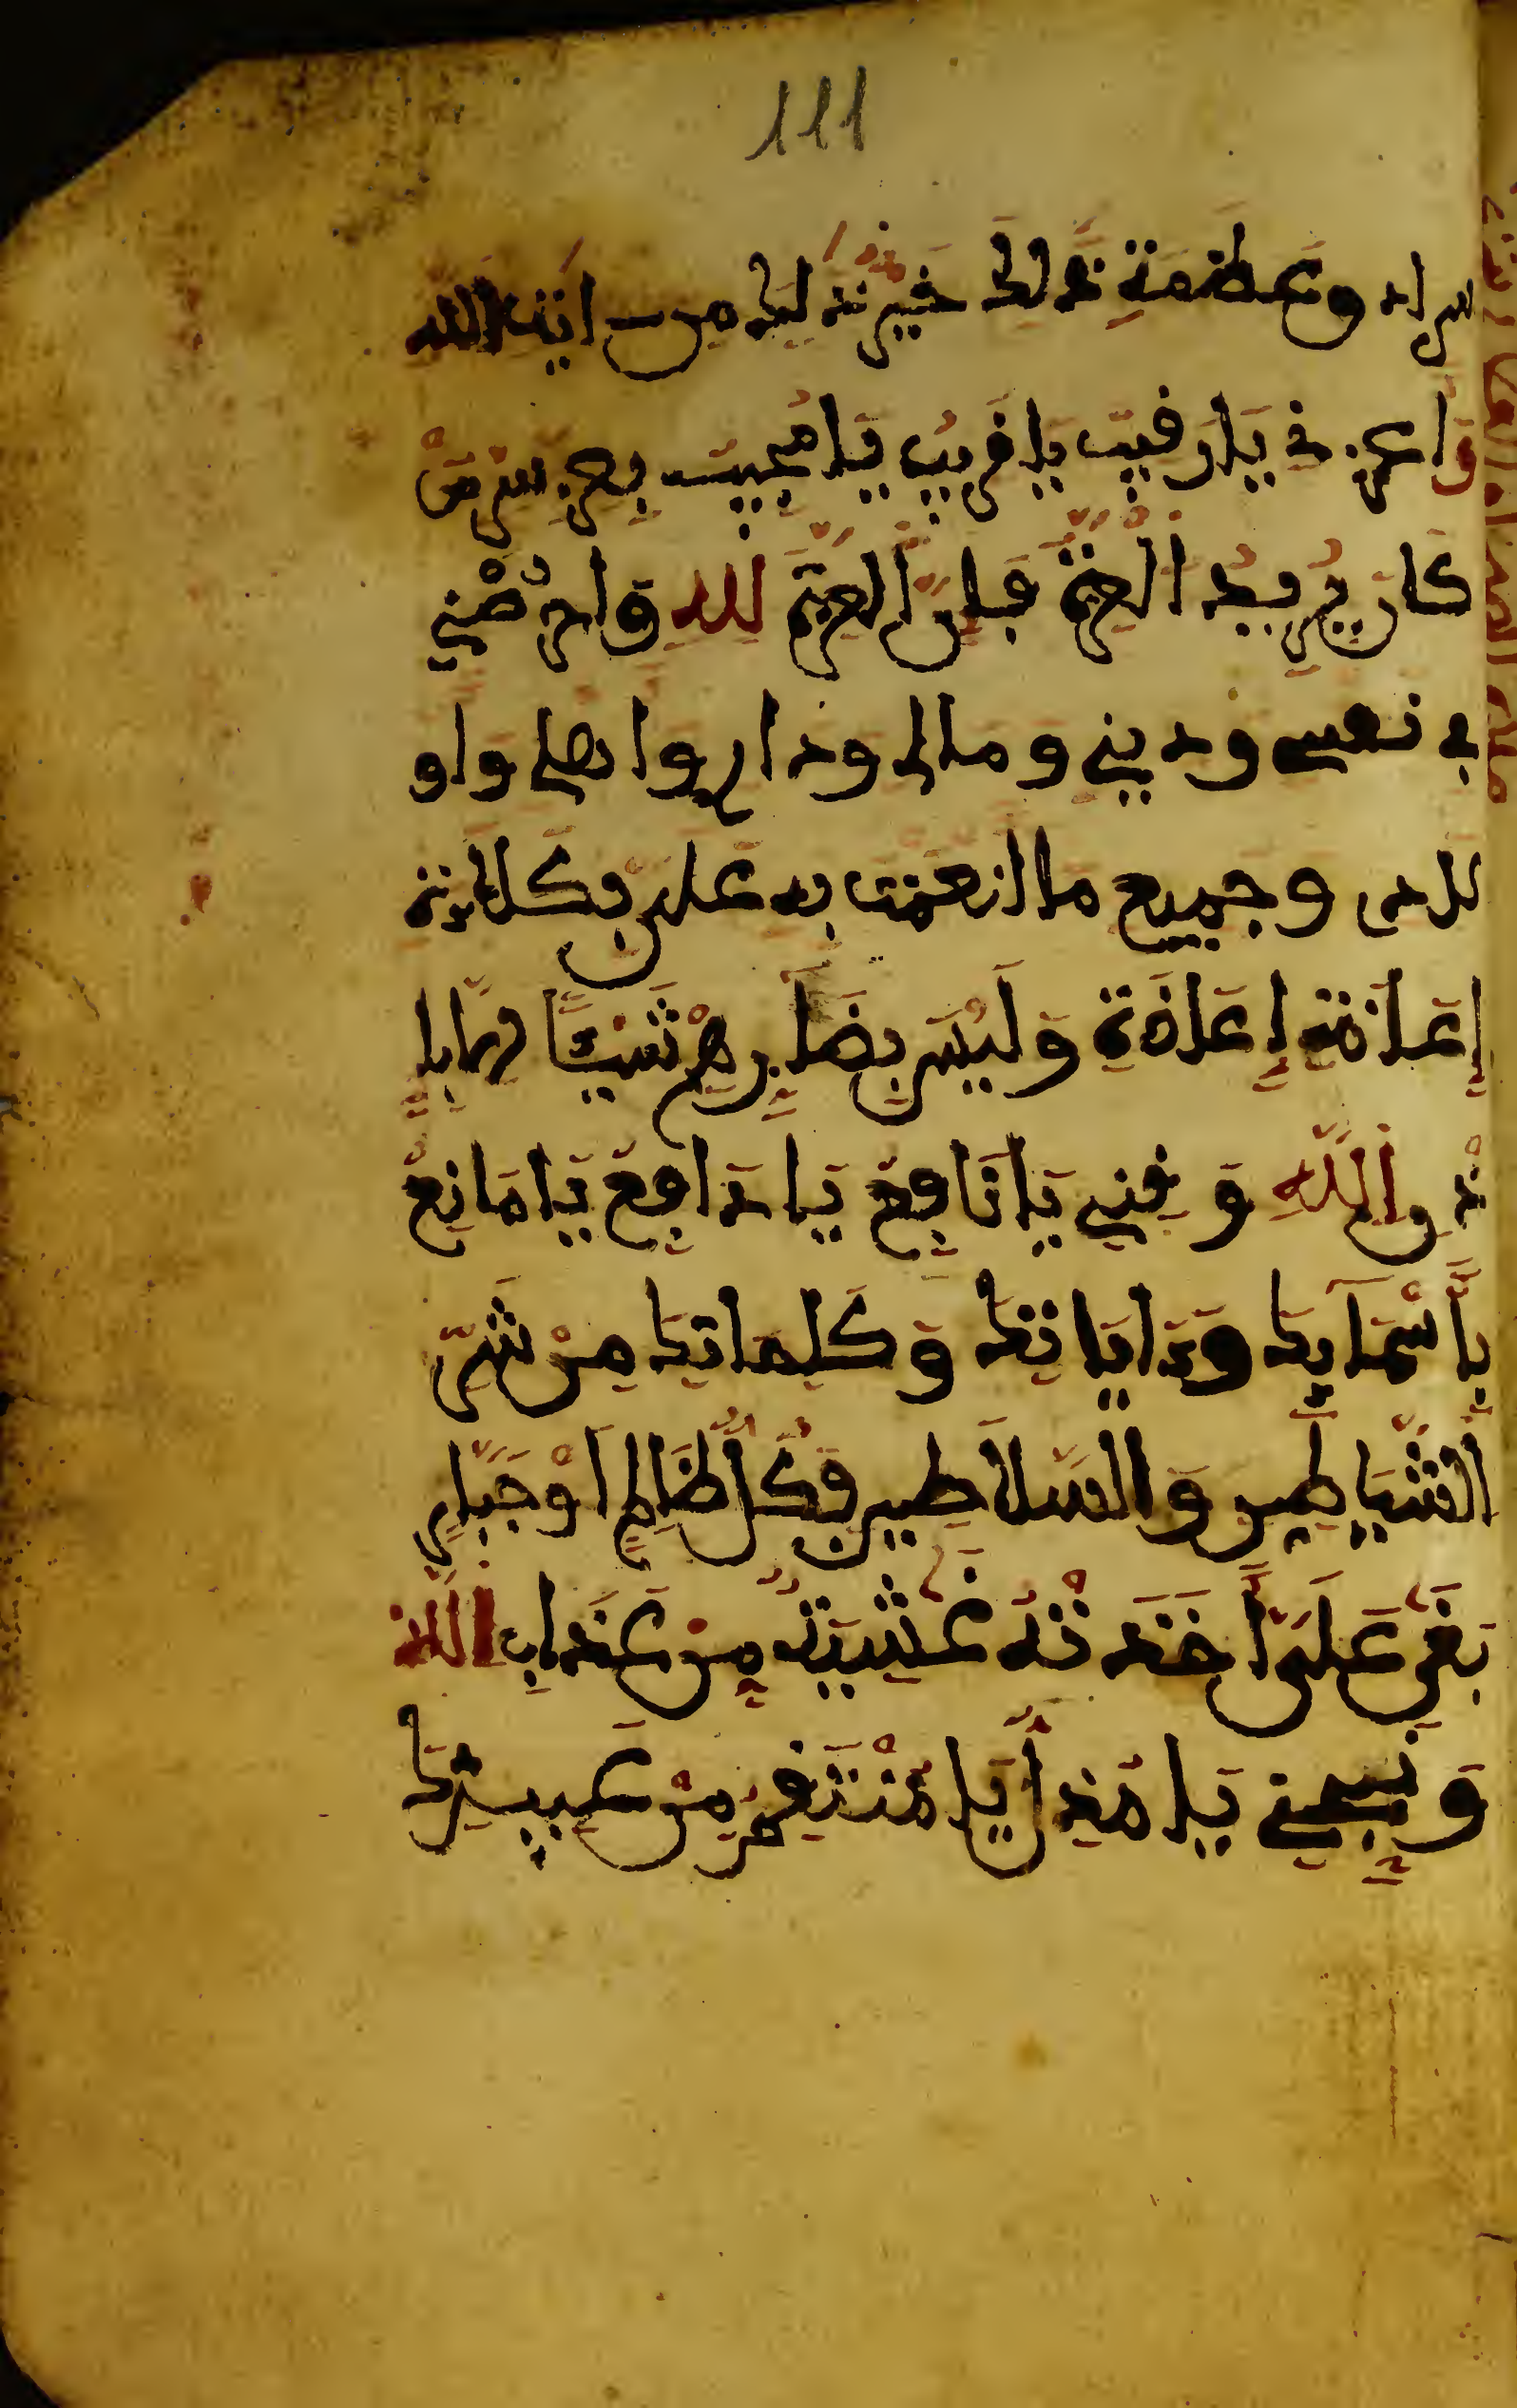 وعظمة ذالك خير ذالك من ايت الله
يا رقيب يا قريب يا مجيب من
كان يريد العزة فإن العزة لله واحرسني
في نفسي وديني ومالي ودار واهلي واو
لادي وجميع ما انعمت به علي بكلاءة
إعاذة إعاذة وليس بضارهم شيئا الا بإ
ذن الله وقني يا نافع يا دافع يا مانع
بأسمايك وءاياتك وكلماتك من شر
الشياطين والسلاطين فكل ظالم أو جبار
بغى على أخذته غشية من عذاب الله
ونجني يا مذل يا منتقم من عبيدك